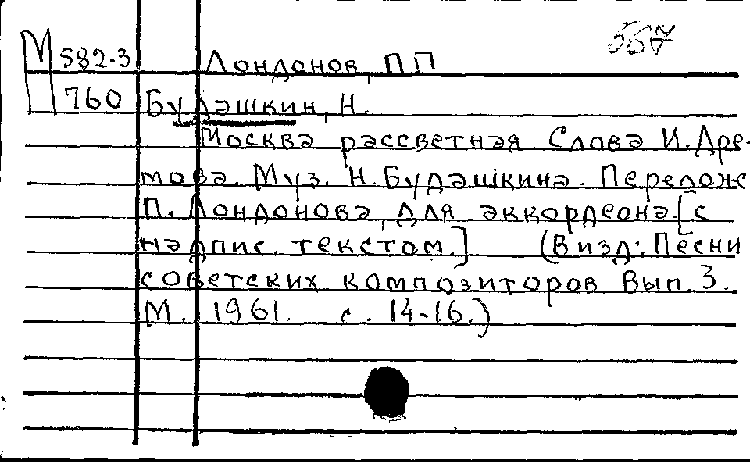 М 582-3 Лондонов, П.П 557
760 Будашкин, Н.
Москва рассветная Слова И. Дре-
мова. Муз. Н. Будашкина. Перелож
П. Лондонова, для аккордеона [с
надпис. текстом.] (В изд: Песни
советских композиторов Вып. 3.
М. 1961. с. 14-16.)